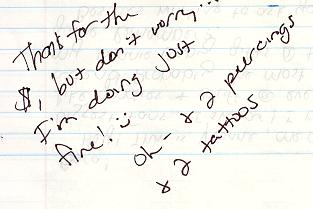 Thanks for the
$, but don't worry...
I'm doing just
fine! :)
oh - x 2 piercings
x 2 tattoos